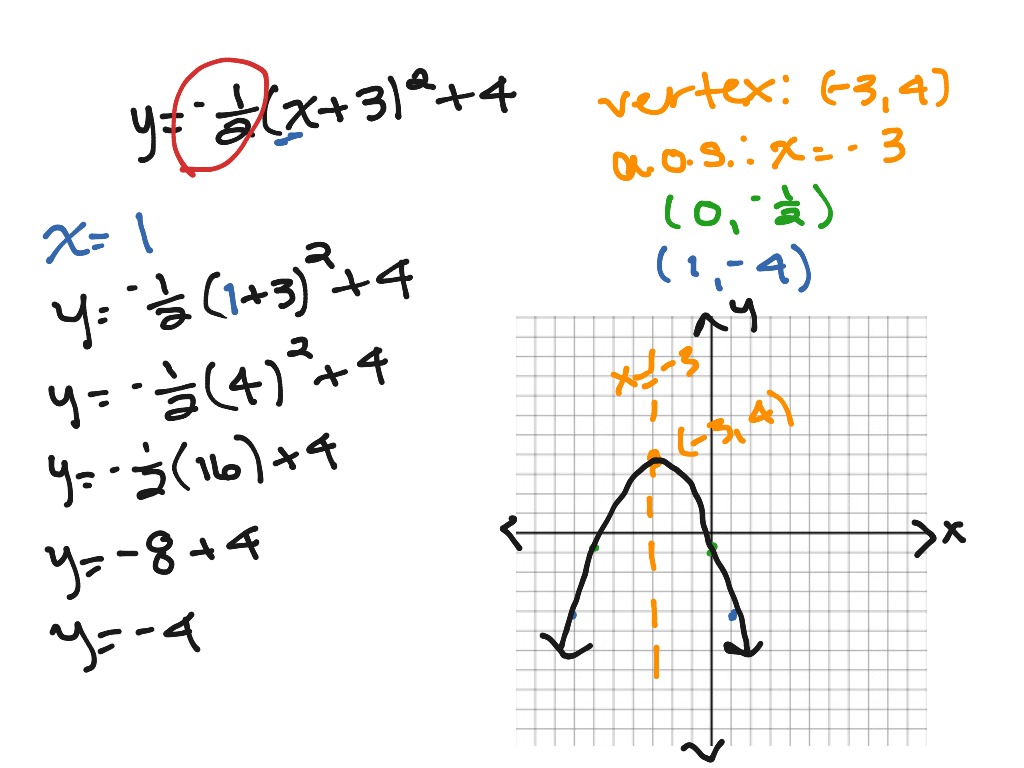 y = -1/2(x+3)² + 4
vertex: (-3, 4)
a.o.s.: x = -3
(0, -1/2)
(1, -4)
x = 1
y = -1/2(1+3)² + 4
y = -1/2(4)² + 4
y = -1/2(16) + 4
y = -8 + 4
y = -4
y
x = -3
(-3, 4)
x